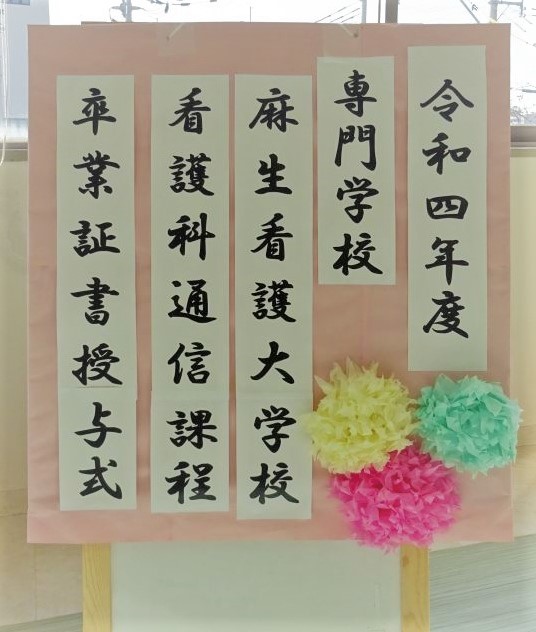 令和四年度
専門学校
麻生看護大学校
看護科通信課程
卒業証書授与式